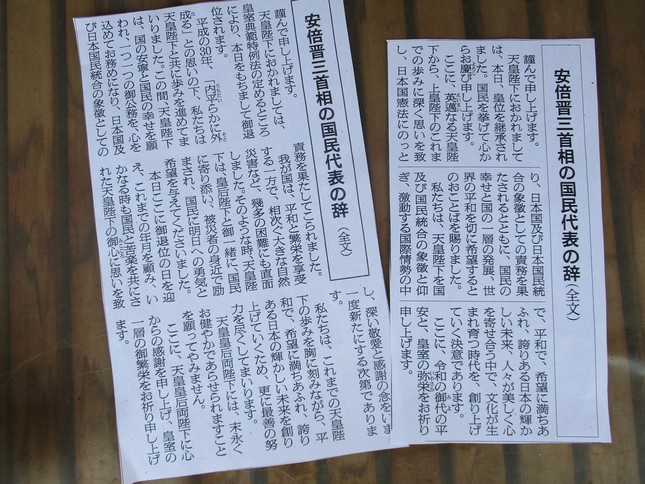 安倍晋三首相の国民代表の辞〈全文〉
謹んで申し上げます。
天皇陛下におかれましては、
皇室典範特例法の定めるところ
により、本日をもちまして御退
位されます。
平成の30年、「内平らかに外
成る」との思いの下、私たちは
天皇陛下と共に歩みを進めてま
いりました。この間、天皇陛下
は、国の安寧と国民の幸せを願
われ、一つ一つの御公務を、心を
込めてお務めになり、日本国及
び日本国民統合の象徴としての
責務を果たしてこられました。
我が国は、平和と繁栄を享受
する一方で、相次ぐ大きな自然
災害など、幾多の困難にも直面
しました。そのような時、天皇陛
下は、皇后陛下と御一緒に、国民
に寄り添い、被災者の身近で励
まされ、国民に明日への勇気と
希望を与えてくださいました。
本日ここに御退位の日を迎
え、これまでの年月を顧み、い
かなる時も国民と苦楽を共にさ
れた天皇陛下の御心に思いを致
し、深い敬愛と感謝の念をいま
一度新たにする次第でありま
す。
私たちは、これまでの天皇陛
下の歩みを胸に刻みながら、平
和で、希望に満ちあふれ、誇り
ある日本の輝かしい未来を創り
上げていくため、更に最善の努
力を尽くしてまいります。
天皇皇后両陛下には、末永く
お健やかであらせられますこと
を願ってやみません。
ここに、天皇皇后両陛下に心
からの感謝を申し上げ、皇室の
一層の御繁栄をお祈り申し上げ
ます。
安倍晋三首相の国民代表の辞〈全文〉
謹んで申し上げます。
天皇陛下におかれまして
は、本日、皇位を継承され
ました。国民を挙げて心か
らお慶び申し上げます。
ここに、英邁なる天皇陛
下から、上皇陛下のこれま
での歩みに深く思いを致
し、日本国憲法にのっと
り、日本国及び日本国民統
合の象徴としての責務を果
たされるとともに、国民の
幸せと国の一層の発展、世
界の平和を切に希望すると
のおことばを賜りました。
私たちは、天皇陛下を国
及び国民統合の象徴と仰
ぎ、激動する国際情勢の中
で、平和で、希望に満ちあ
ふれ、誇りある日本の輝か
しい未来、人々が美しく心
を寄せ合う中で、文化が生
まれ育つ時代を、創り上げ
ていく決意であります。
ここに、令和の御代の平
安と、皇室の弥栄をお祈り
申し上げます。